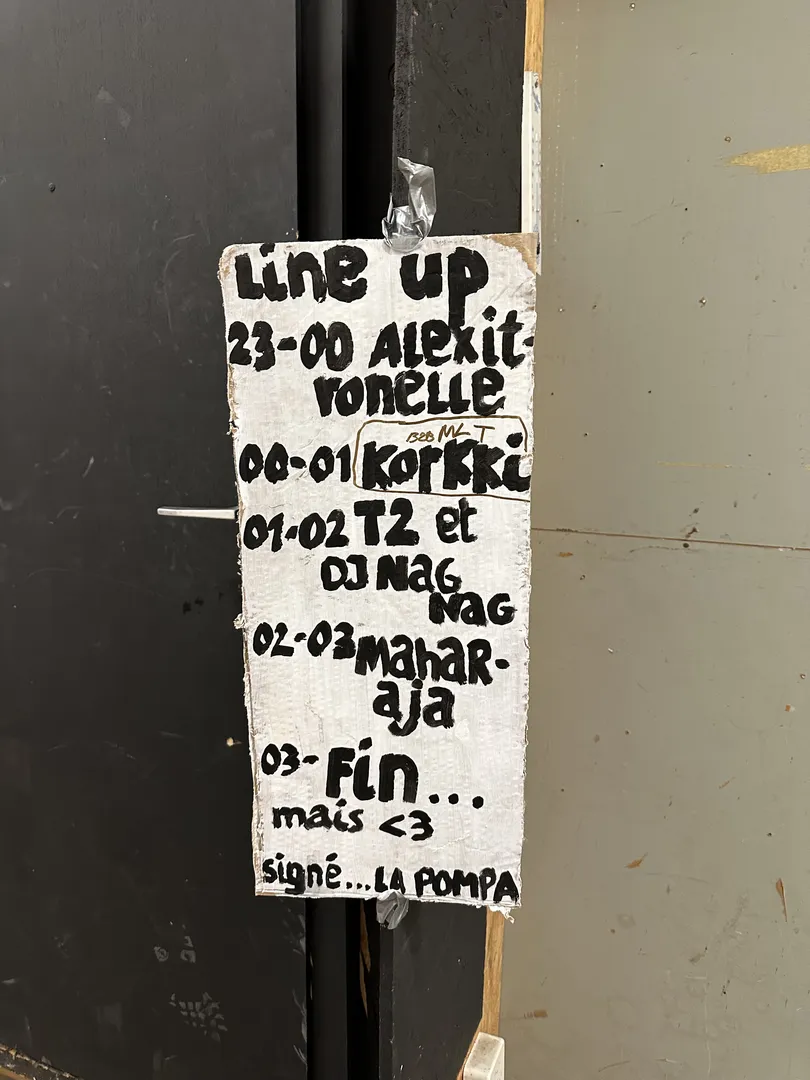 Line up
23-00 Alexit-
ronelle
B2B MLT
00-01 Korkki
01-02 T2 et
DJ Nag
Nag
02-03 Mahar-
aja
03- Fin...
mais <3
signé...LA POMPA